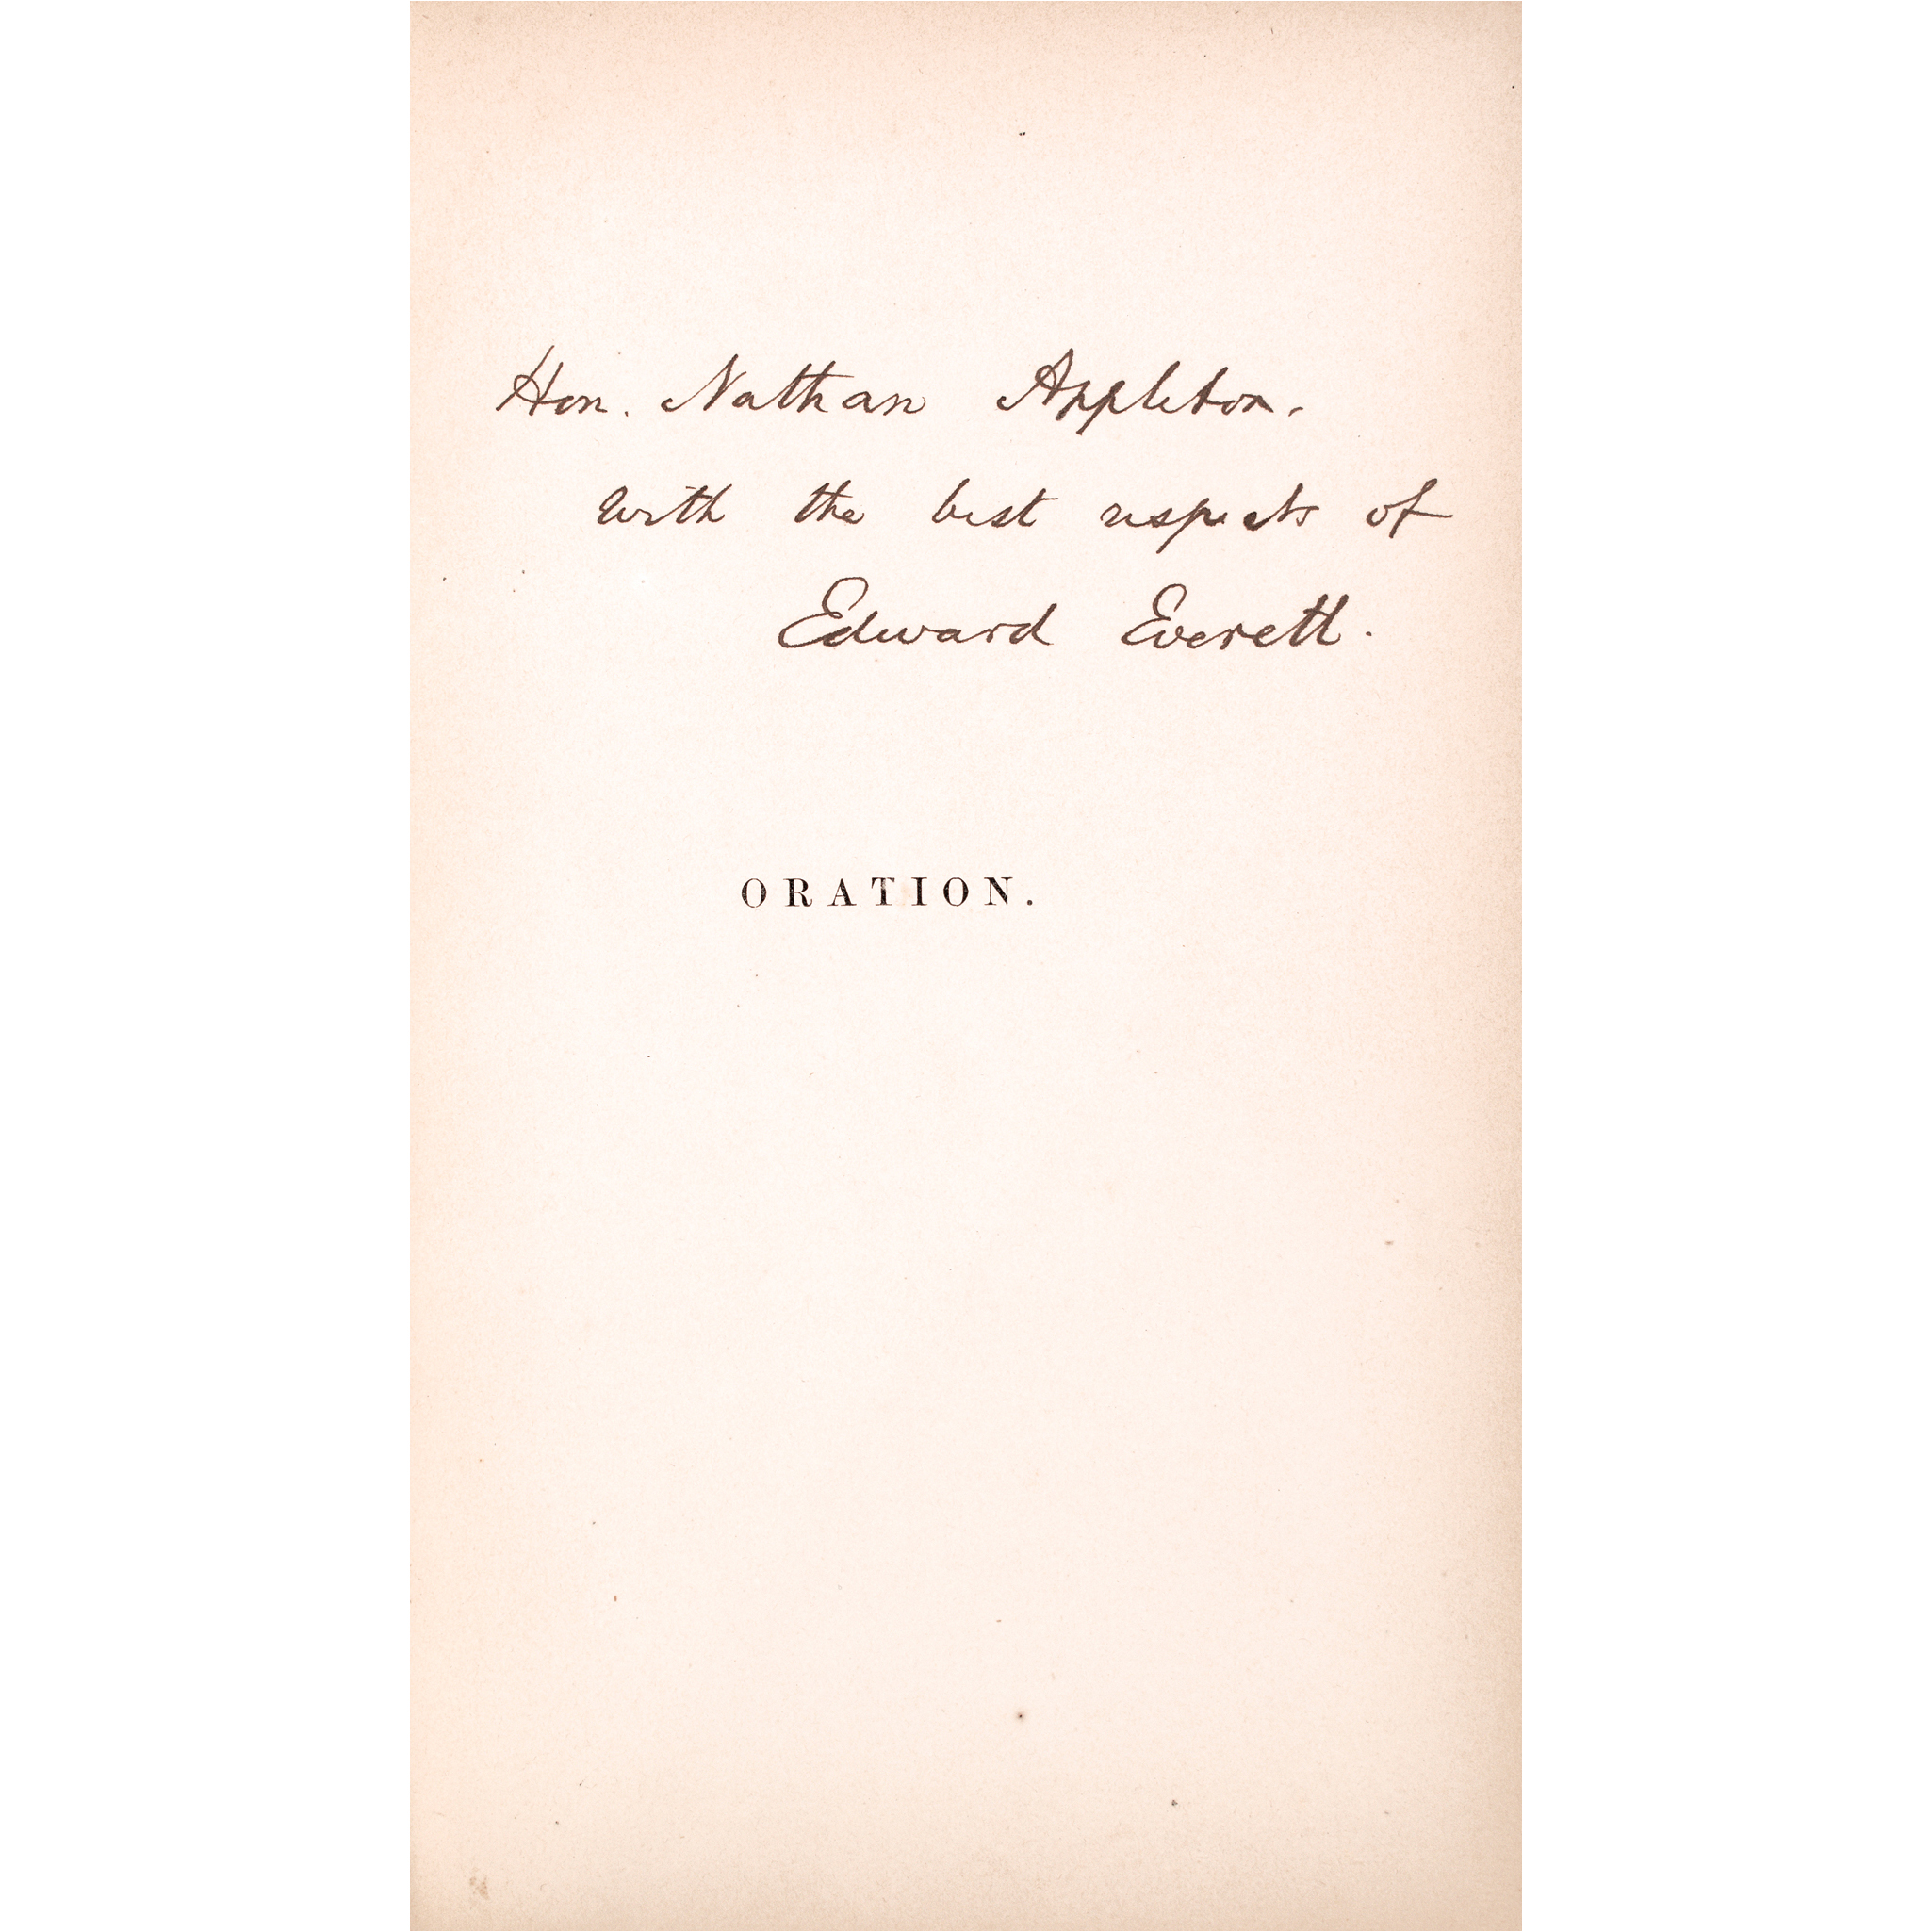 Hon. Nathan Appleton.
with the best respects of
Edward Everett.
ORATION.